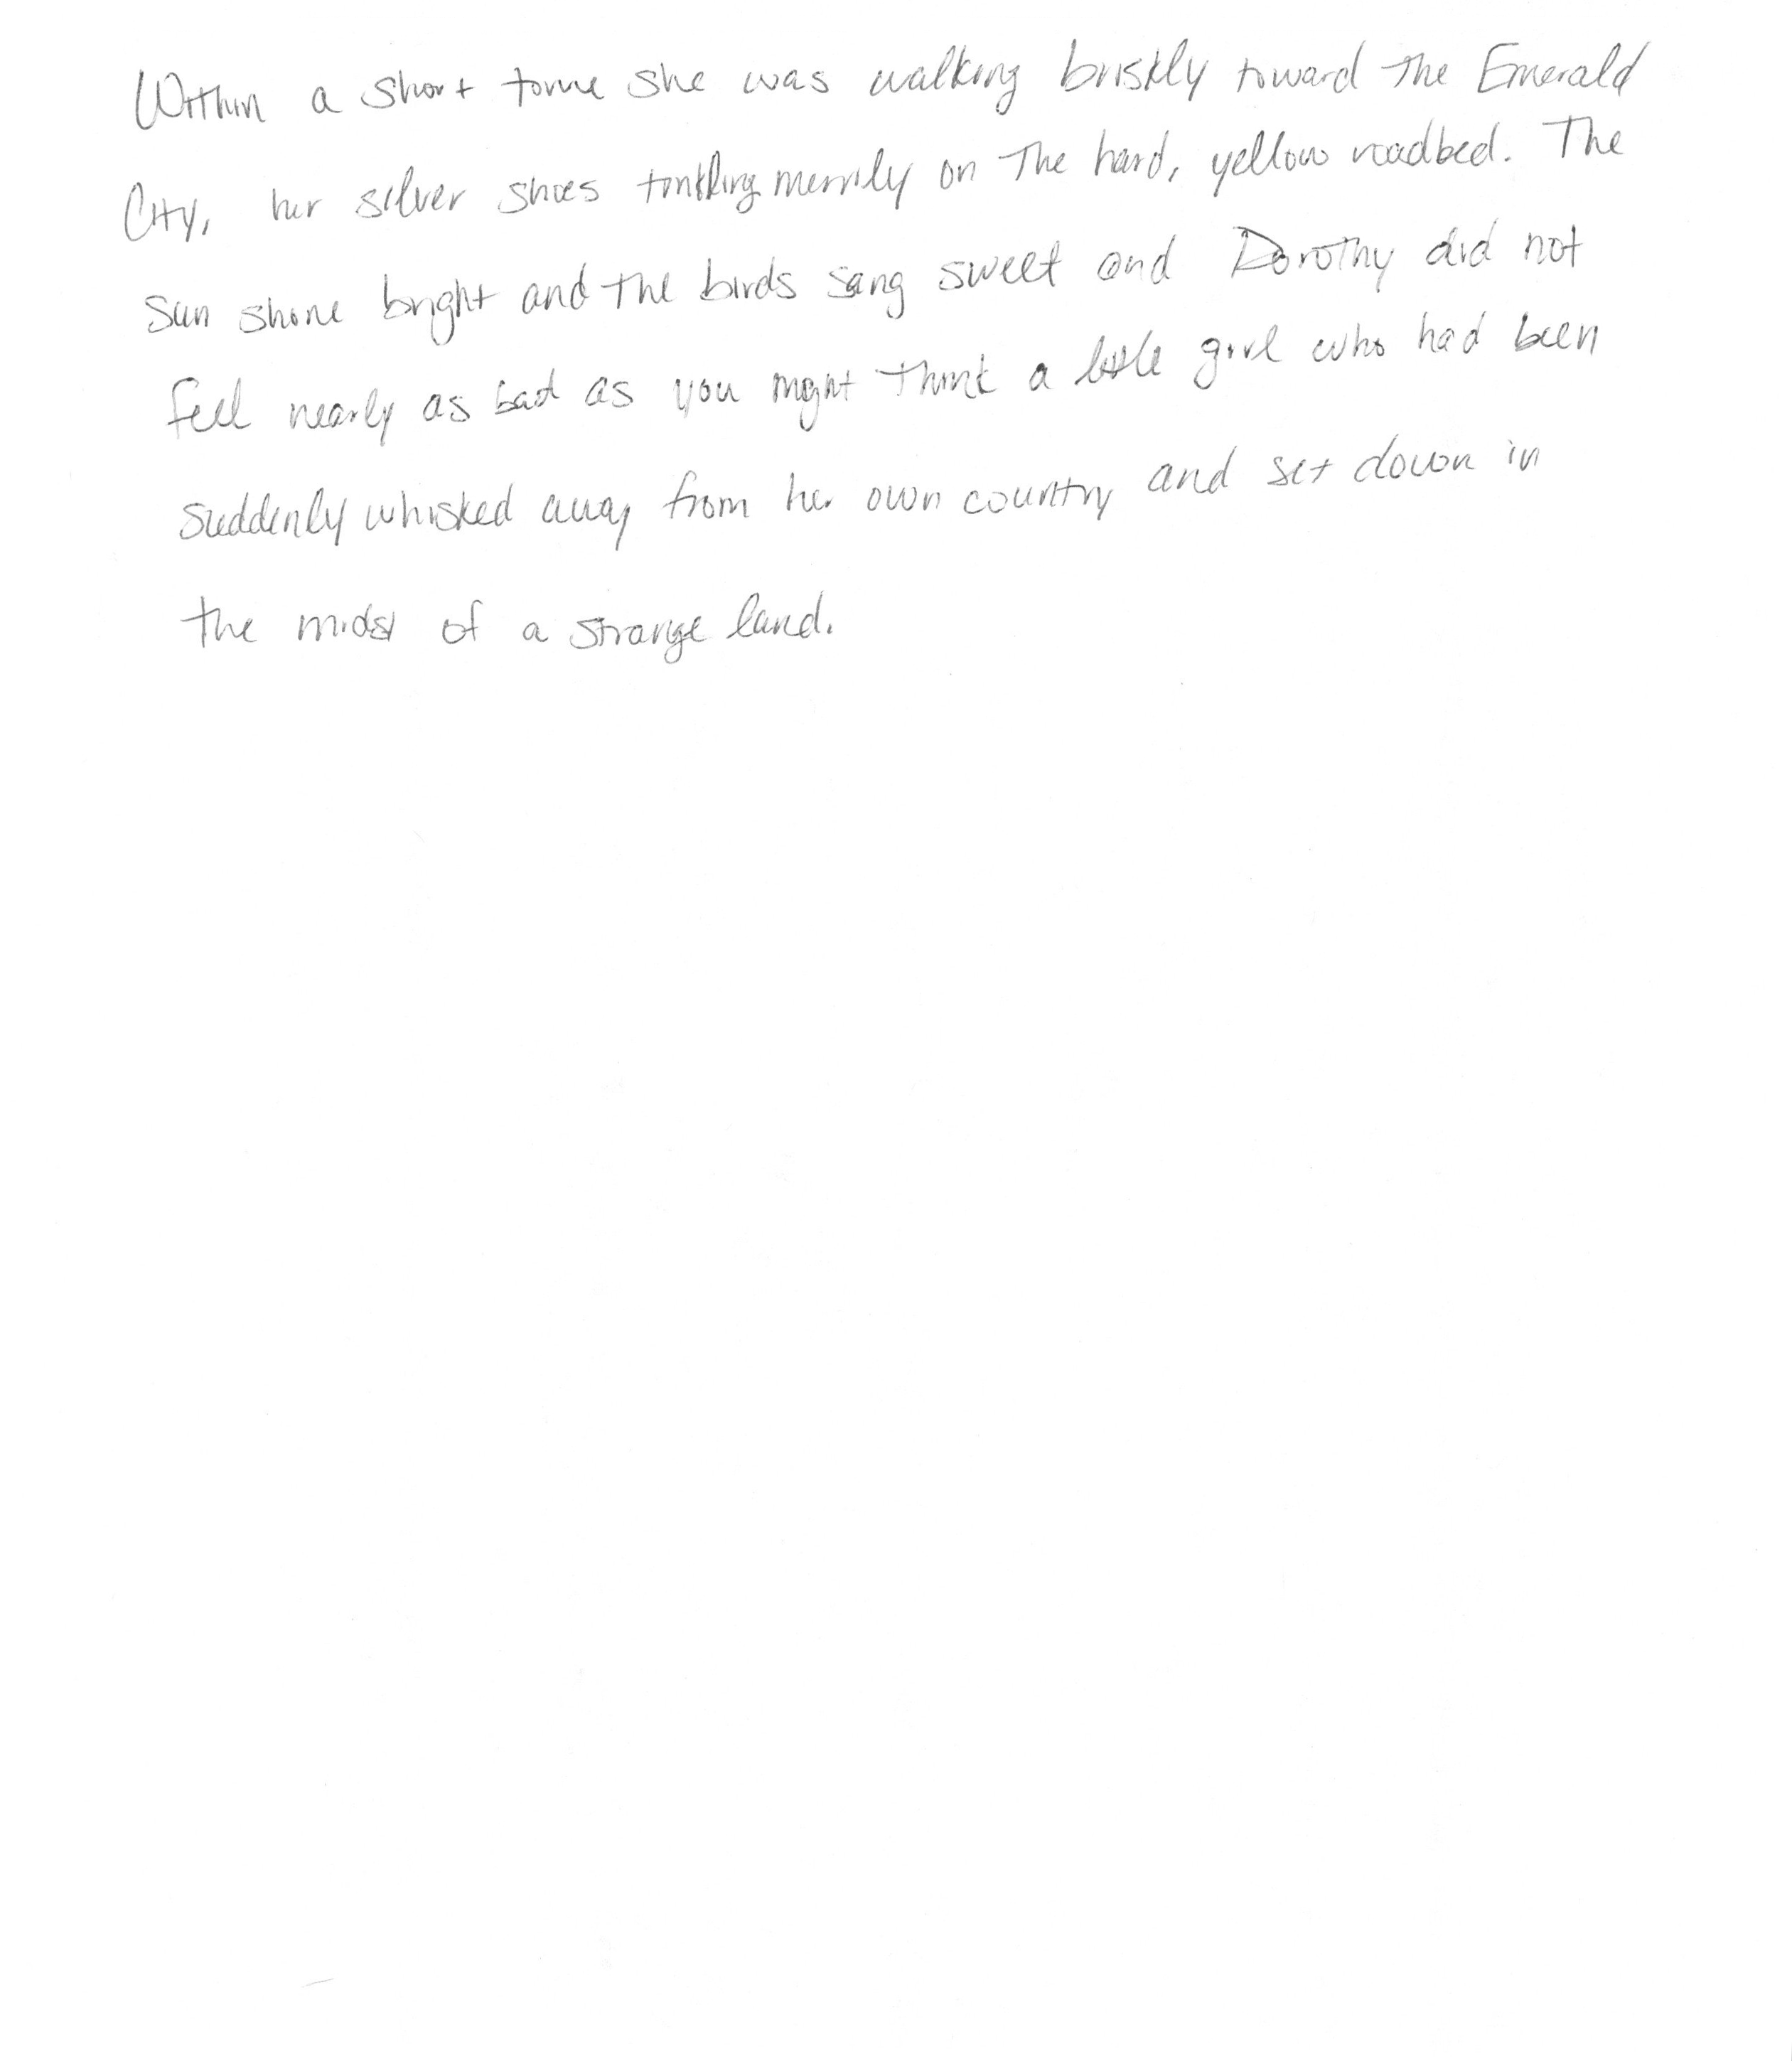 Within a short time she was walking briskly toward the Emerald
City, her silver shoes tinkling merrily on the hard, yellow roadbed. The
sun shone bright and the birds sang sweet and Dorothy did not
feel nearly as bad as you might think a little girl who had been
suddenly whisked away from her own country and set down in
the midst of a strange land.